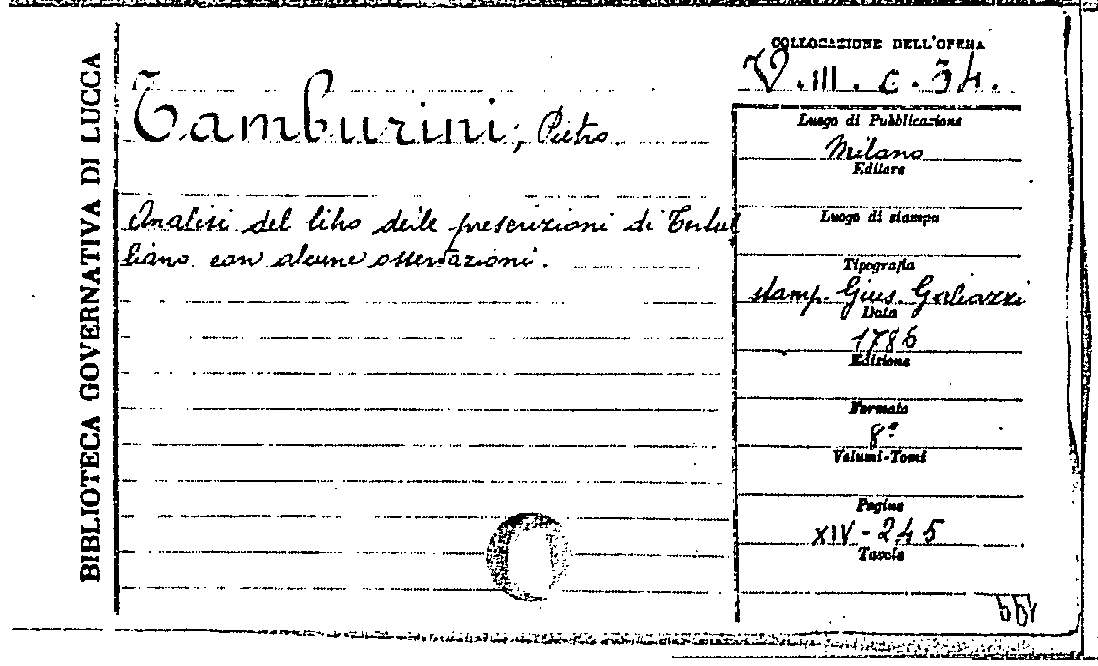 BIBLIOTECA GOVERNATIVA DI LUCCA
Tamburini, Pietro
Analisi del libro delle prescrizioni di Tertul
liano con alcune osservazioni.
COLLOCAZIONE DELL'OPERA
V. III. c. 34.
Luogo di Pubblicazione
Milano
Editore
Luogo di stampa
Tipografia
stamp. Gius. Galeazzi
Data
1786
Edizione
Formato
8º
Volumi-Tomi
Pagine
XIV - 245
Tavole